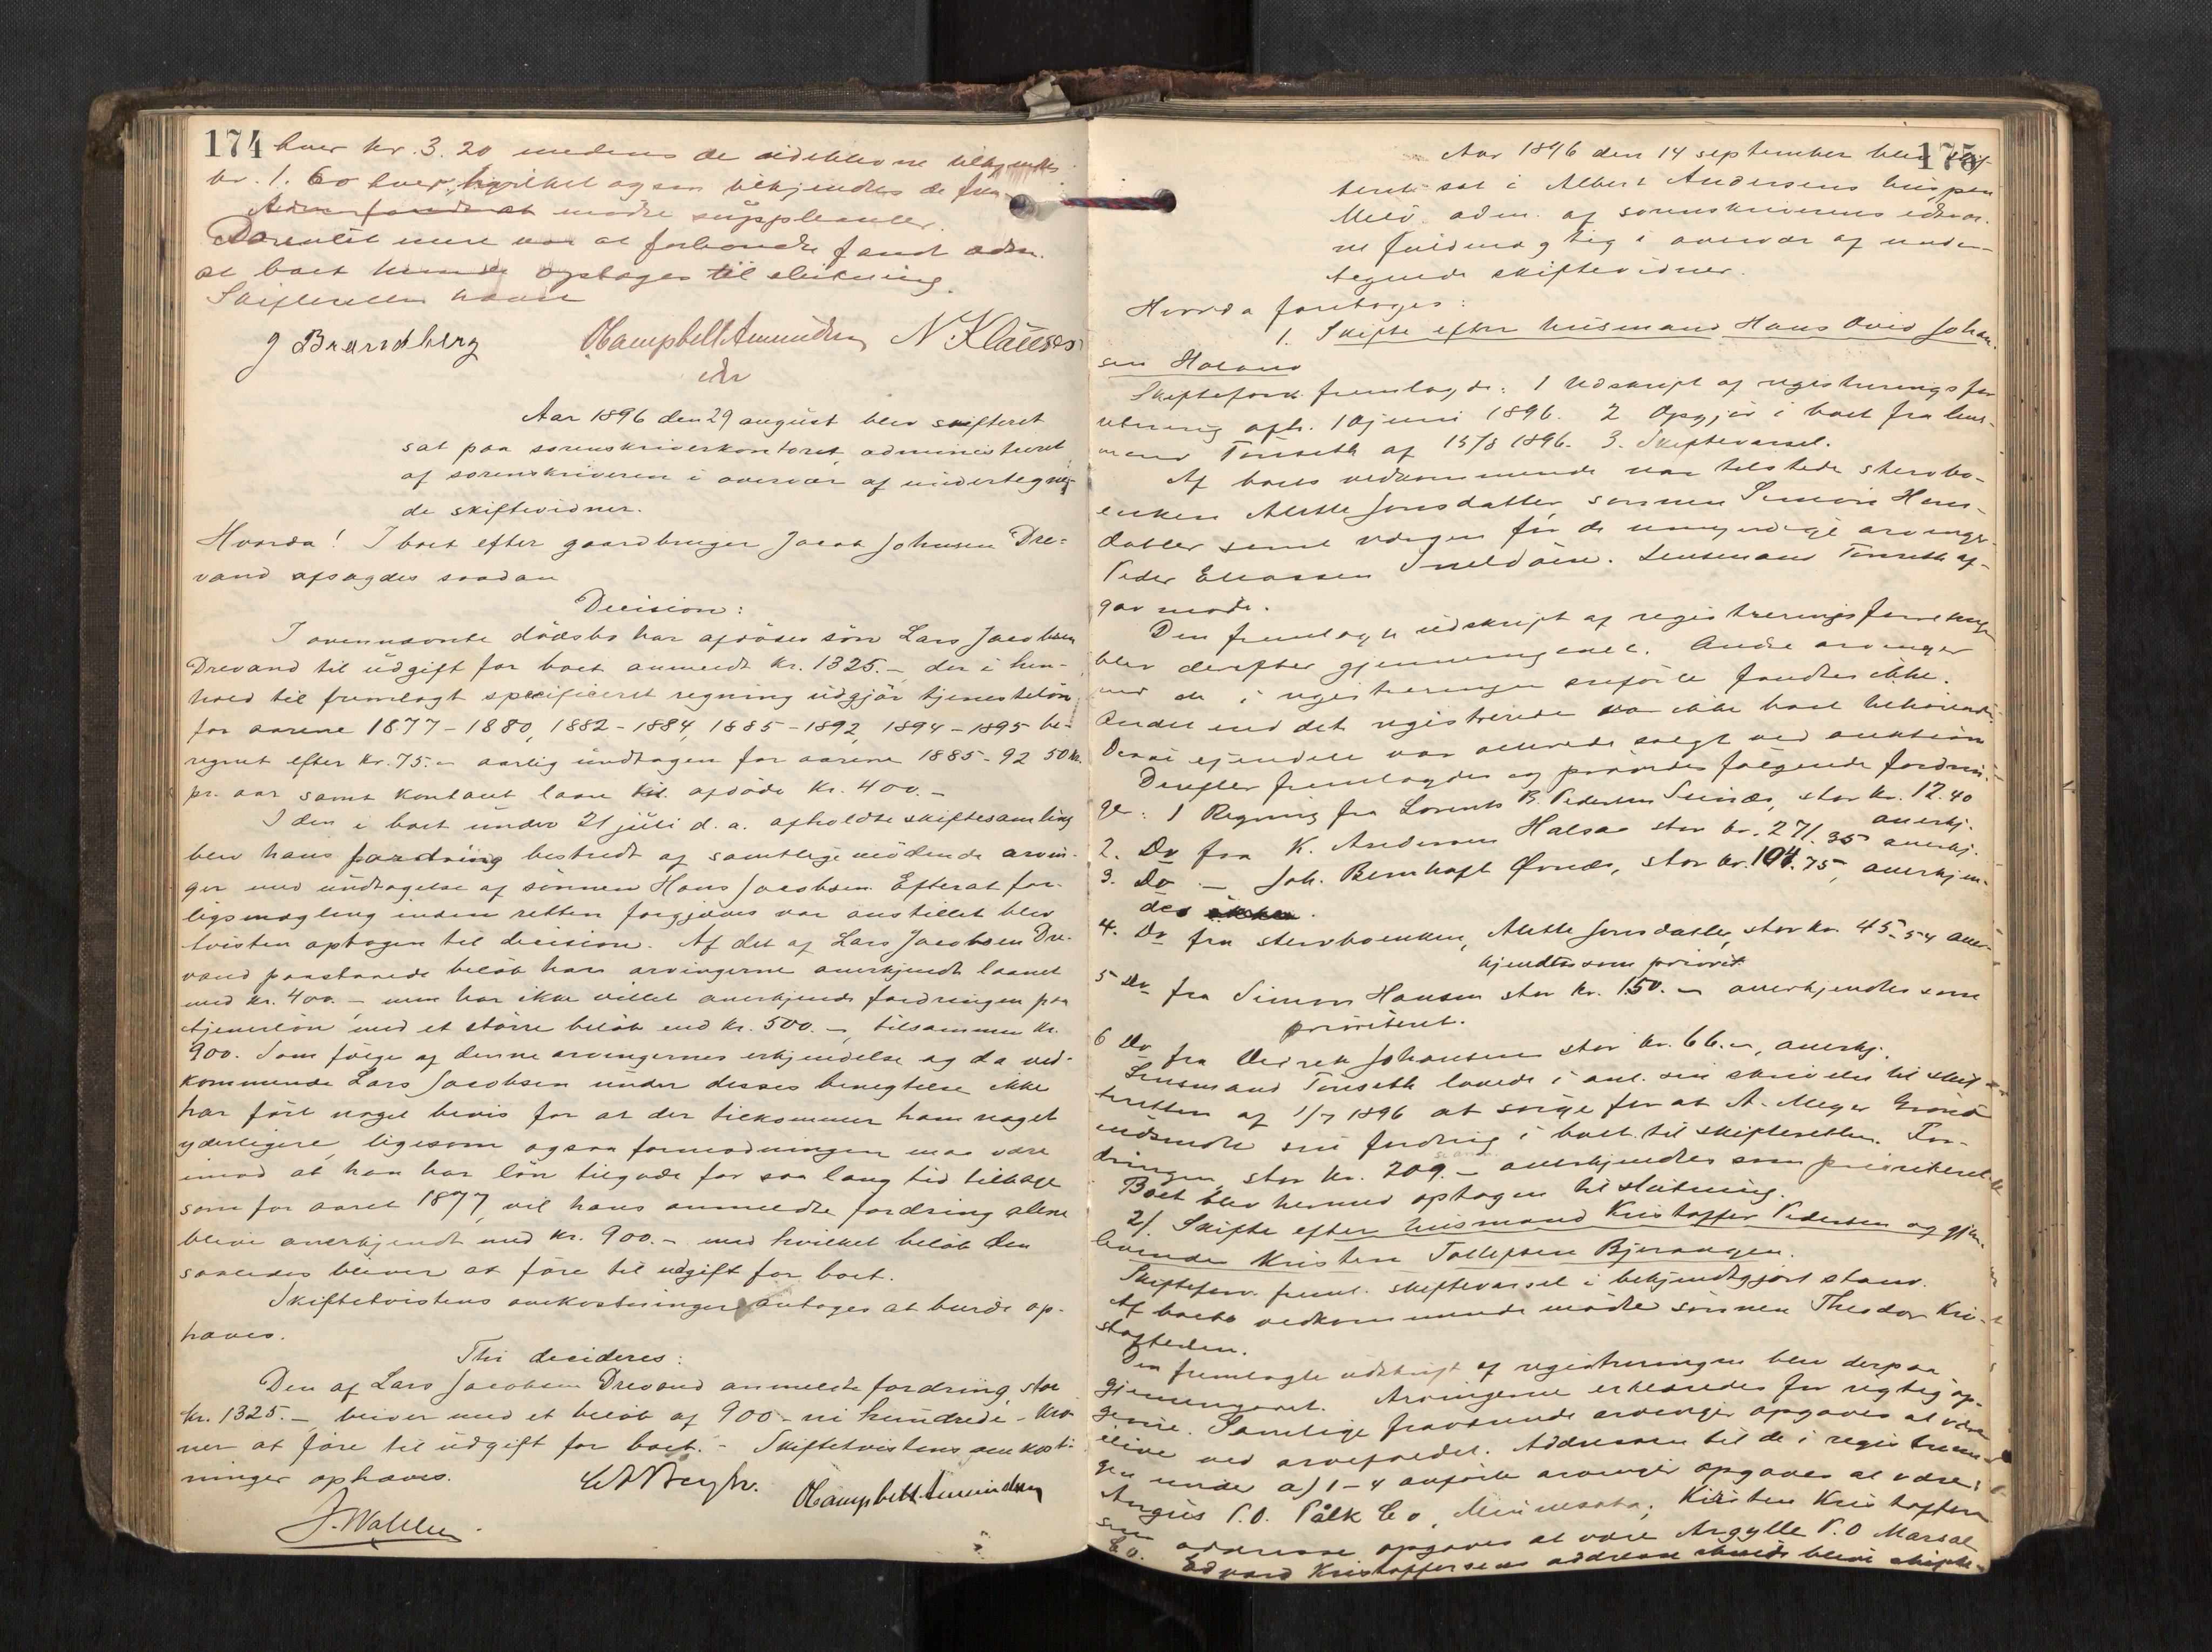 174
hver kr. 3.20 medens de tilkjendtes
kr. 1.60 hver, hvilket ogsaa tilkjendtes de fra
mødte suppleanter.
Da intet mere var at forhandle fandt adm.
at boet kunde optages til slutning.
Skifteretten hævet
J Brandsberg OCampbellAmundsen N Klausen
Aar 1896 den 29 august blev skifteret
sat paa sorenskriverkontoret, administreret
af sorenskriveren i overvær af undertegne-
de skiftevidner.
Hvorda! I boet efter gaardbruger Jacob Johnsen Dre-
vand afsagdes saadan
Decision:
I ovennævnte dødsbo har afdødes søn Lars Jacobsen
Drevand til udgift for boet anmeldt kr. 1325.-, der i hen-
hold til fremlagt specificeret regning udgjør tjenesteløn
for aarene 1877-1880, 1882-1884, 1885-1892, 1894-1895 be-
regnet efter kr. 75.- aarlig undtagen for aarene 1885-92 50 kr.
pr. aar samt kontant laan til afdøde kr. 400.-
I den i boet under 21 juli d. a. afholdte skiftesamling
blev hans fordring bestridt af samtlige mødende arvin-
ger med undtagelse af sønnen Hans Jacobsen. Efterat for-
ligsmægling inden retten forgjæves var anstillet blev
tvisten optagen til decision. Af det af Lars Jacobsen Dre-
vand paastaaede beløb har arvingerne anerkjendt laanet
med kr. 400.- men har ikke villet anerkjende fordringen paa
tjenerløn med et større beløb end kr. 500.-, tilsammen kr.
900. Som følge af denne arvingernes erkjendelse og da ved-
kommende Lars Jacobsen under disses benegtelse ikke
har ført noget bevis for at der tilkommer ham noget
yderligere, ligesom ogsaa formodningen maa være
imod at han har løn tilgode for saa lang tid tilbage
som for aaret 1877, vil hans anmeldte fordring alene
blive anerkjendt med kr. 900.- med hvilket beløb den
saaledes bliver at føre til udgift for boet.
Skiftetvistens omkostninger antages at burde op-
hæves.
Thi decideres:
Den af Lars Jacobsen Drevand anmeldte fordring, stor
kr. 1325.-, bliver med et beløb af 900 - ni hundrede - kro-
ner at føre til udgift for boet. - Skiftetvistens omkost-
ninger ophæves.
OCampbellAmundsen
175
Aar 1896 den 14 september blev skif-
teret sat i Albert Andersens hus paa
Melø adm. af sorenskriverens edsvor-
ne fuldmægtig i overvær af under-
tegnede skiftevidner.
Hvorda foretoges:
1. Skifte efter husmand Hans Ovid Johan-
sen Haland
Skifteforv. fremlagde: 1 Udskript af registreringsfor
retning afh. 10 juni 1896. 2 Opgjør i boet fra lens-
mand Tønseth af 15/8 1896. 3. Skiftevarsel.
Af boets vedkommende var tilstede stervbo-
enken Aletle Jonsdatter, sønnen Simon Hans-
datter samt værgen for de umyndige arvinger
Peder Eliassen Sneldøen. Lensmand Tønseth af-
gav møde.
Den fremlagte udskript af registreringsforretningen
blev derefter gjennemgaaet. Andre arvinger
end de i registreringen anførte fandtes ikke.
Andet end det registrerede var ikke boet tilhørende.
Dets eiendele var allerede solgt ved auktion
Derefter fremlagdes og prøvedes følgende fordrin-
ger: 1 Regning fra Lorents B. Pedersen Selnæs, stor kr. 12.40
anerkj.
2. Do fra K. Andersen Halsaa stor kr. 271.35 anerkj.
3. Do - Joh. Bernhoft Ørnæs, stor kr. 104.75, anerkjen-
des
4. Do fra stervboenken, Aletle Jonsdatter, stor kr. 45.54 aner-
kjendtes som priorit.
5 Do fra Simon Hansen stor kr. 150.- anerkjendtes som
prioriteret.
6 Do fra Didrik Johansen stor kr. 66.-, anerkj.
Lensmand Tønseth lovede i anl. sin skrivelse til skif-
teretten af 1/7 1896 at sørge for at A. Meyer Grønø
indsendte sin fordring i boet til skifteretten. For-
dringen, stor kr. 209.- anerkjendtes som prioriteret
Boet blev hermed optagen til slutning.
2). Skifte efter husmand Kristoffer Pedersen og gjen-
levende Kristen Tollefsen Bjerangen.
Skifteforv. freml. skiftevarsel i bekjendtgjort stand.
Af boets vedkommende mødte sønnen Theodor Kri-
stoffersen.
Den fremlagte udskript af registreringen blev derpaa
gjennemgaaet. Arvingerne erklæredes for rigtig op-
givne. Samtlige fraværende arvinger opgaves at være
i live ved arvefaldet. Addressen til de i registrerin-
gen under a) 1-4 anførte arvinger opgaves at være:
Angus P.O. Pålk Co, Minnesota, Kirsten Kristoffer
sens addresse opgaves at være Argylle P.O Marsal
Co. Edvard Kristoffersens addresse skulde blive skifte-